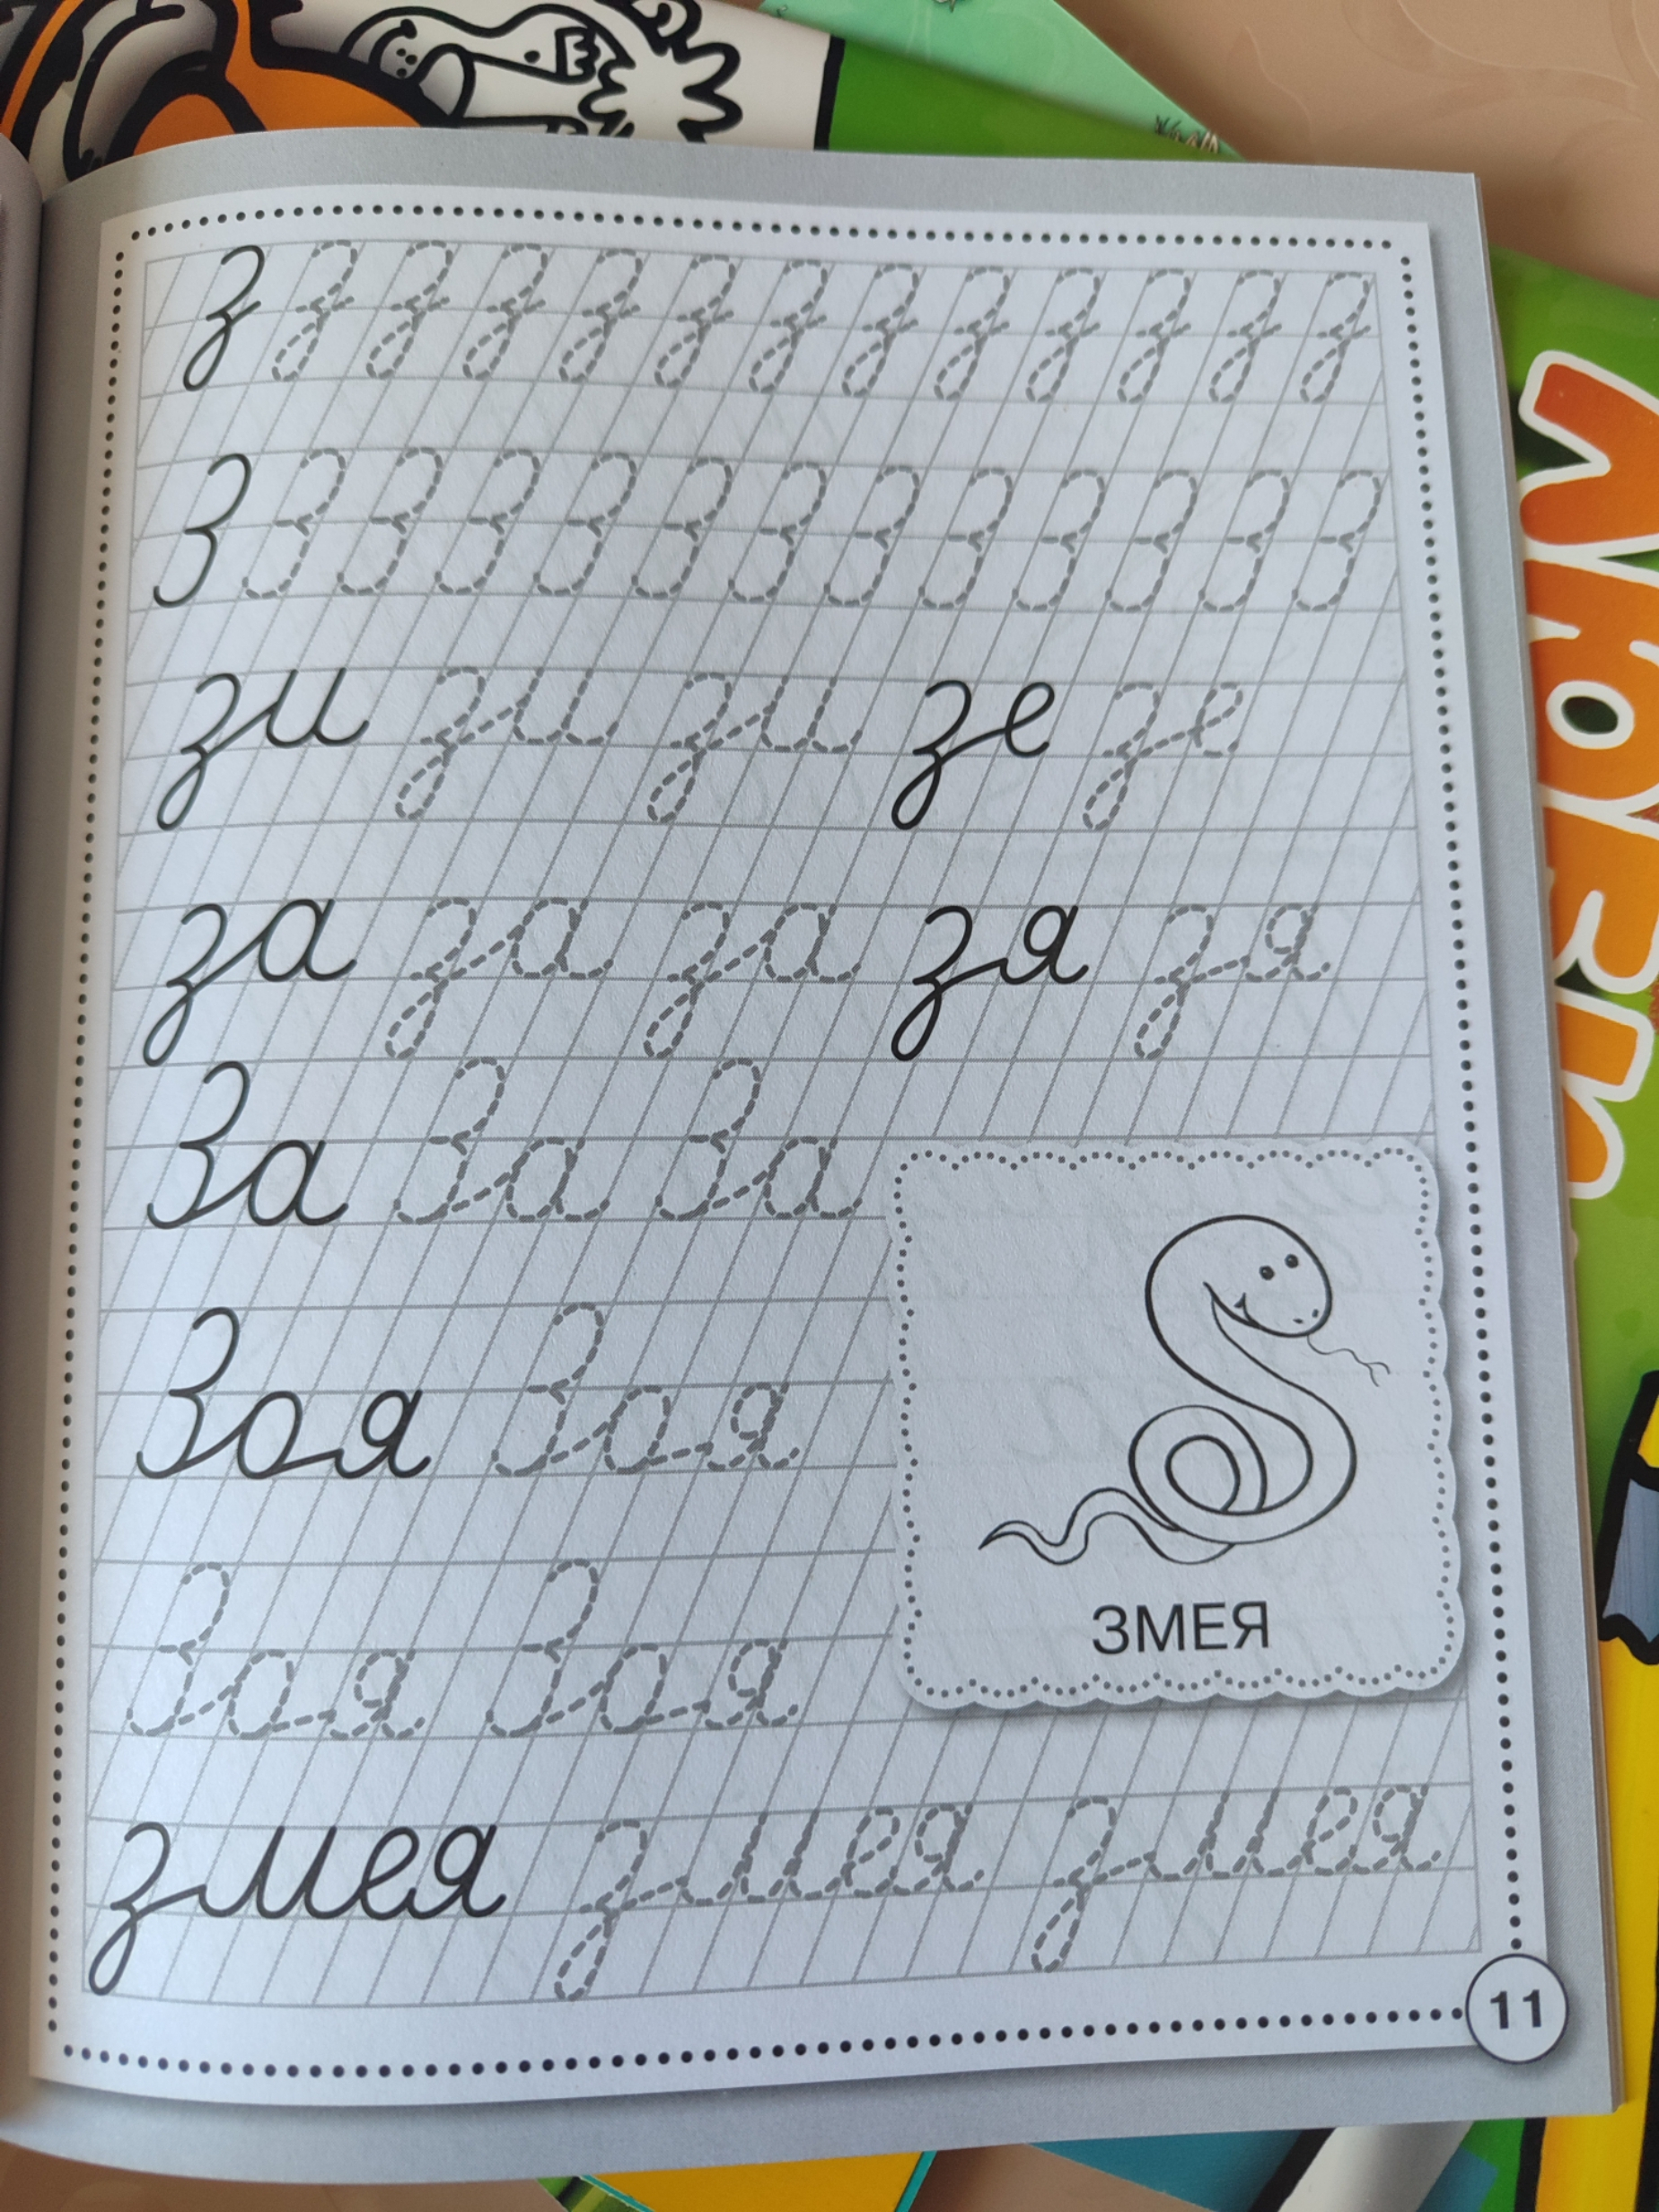 з з з з з з з з з з з з з
З З З З З З З З З З З З З
зи зи зи зе зе
за за за зя зя
За За За
Зоя Зоя
Зоя Зоя
ЗМЕЯ
змея змея змея
11